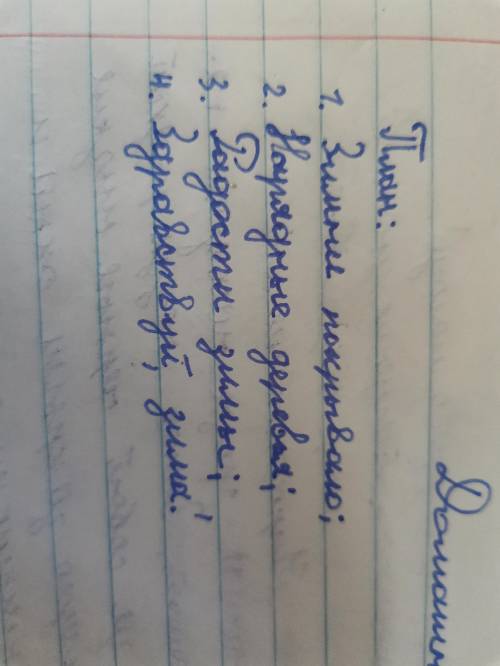 План:
1. Зимнее покрывало;
2. Нарядные деревья;
3. Радости зимы;
4. Здравствуй, зима!